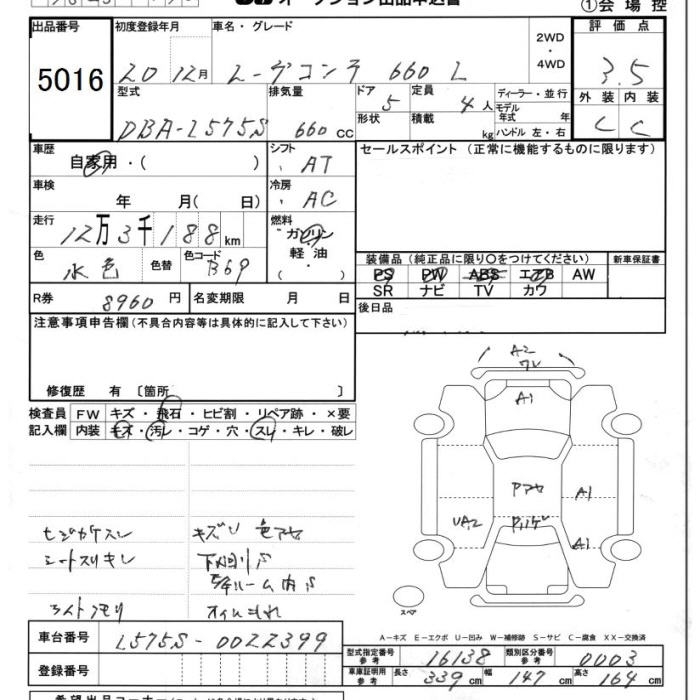 オークション出品申込書
①会場控
出品番号
5016
初度登録年月
20 12月
車名・グレード
ムーヴコンテ 660 L
2WD
・
4WD
評価点
3.5
型式
DBA-L575S
排気量
660 cc
ドア
5
定員
4人
形状
積載
kg
ディーラー・並行
モデル年式 年
ハンドル 左・右
外装 内装
C C
車歴
自家用・( )
シフト
AT
セールスポイント (正常に機能するものに限ります)
車検
年 月( 日)
冷房
AC
走行
12万3千188km
燃料
ガソリン
軽油
( ・ )
色
水色
色替
色コード
B69
装備品 (純正品に限り○をつけてください)
新車保証書
PS PW ABS エアB AW
SR ナビ TV カワ
R券
8960円
名変期限 月 日
後日品
注意事項申告欄(不具合内容等は具体的に記入して下さい)
修復歴 有 〔箇所 〕
検査員記入欄
FW キズ・飛石・ヒビ割・リペア跡・×要
内装 キズ・汚レ・コゲ・穴・スレ・キレ・破レ
A2
ワレ
A1
Pアセ
A1
UA2
A1
キズU 色アセ
シートスリキレ
下廻りS
ルーム内S
ライトクモリ
オイルもれ
スペア
A-キズ E-エクボ U-凹み W-補修跡 S-サビ C-腐食 XX-交換済
車台番号
L575S-0022399
登録番号
型式指定番号 参考
16138
類別区分番号 参考
0003
車庫証明用 参考
長さ 339cm
幅 147cm
高さ 164cm